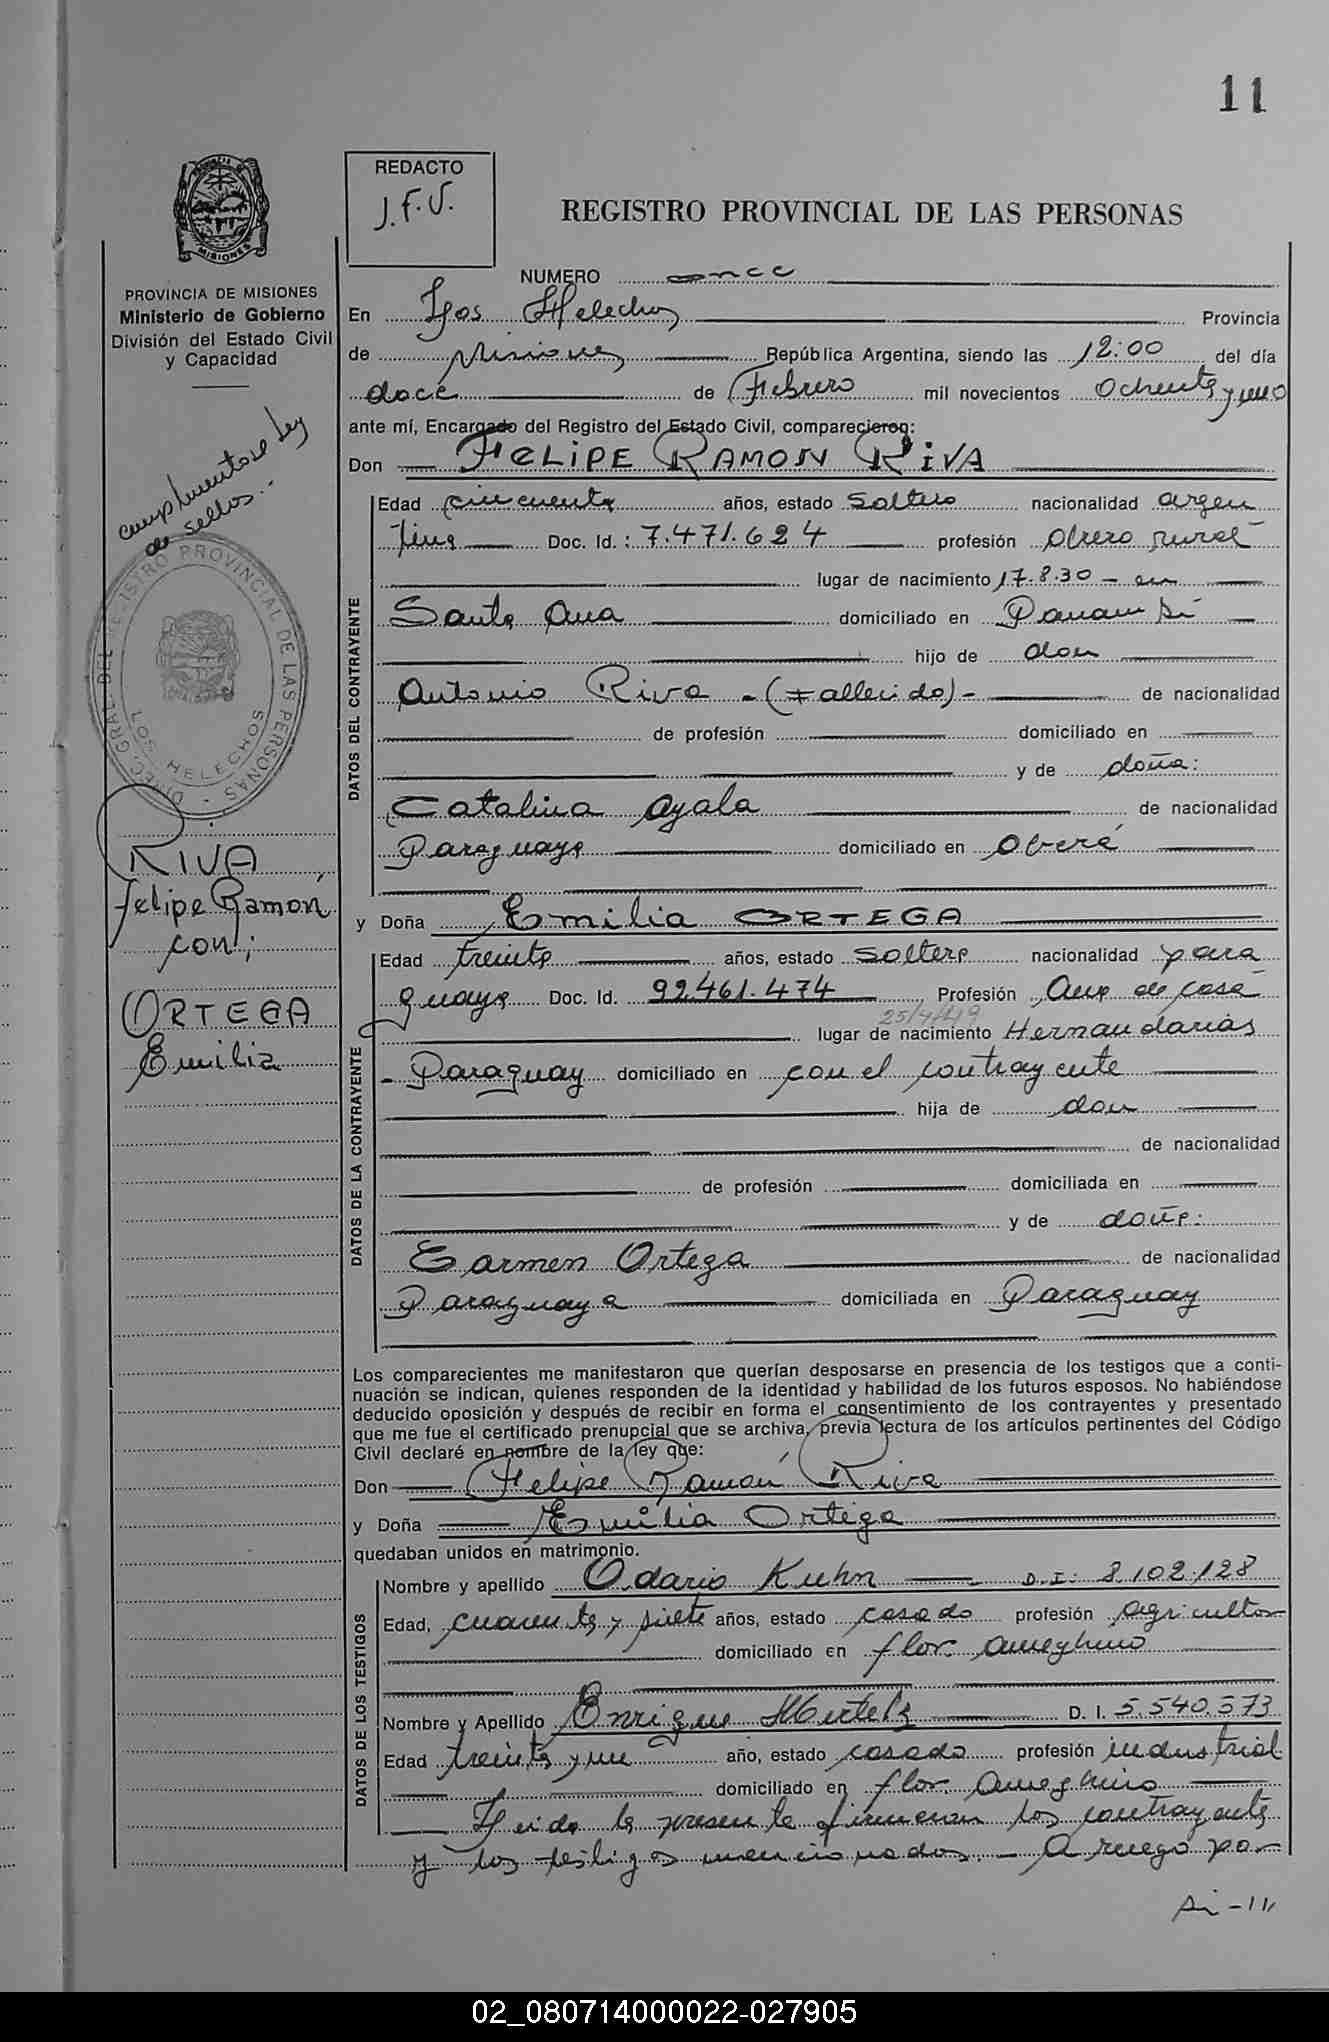 11
REDACTO
J.F.V.
REGISTRO PROVINCIAL DE LAS PERSONAS
MISIONES
PROVINCIA DE MISIONES
Ministerio de Gobierno
División del Estado Civil
y Capacidad
NUMERO once
En Los Helechos Provincia
de Misiones República Argentina, siendo las 12:00 del día
doce de Febrero mil novecientos Ochenta y uno
ante mí, Encargado del Registro del Estado Civil, comparecieron:
Don FELIPE RAMON RIVA
cumplimentose ley
de sellos.-
DATOS DEL CONTRAYENTE
Edad cincuenta años, estado soltero nacionalidad argen
tina Doc. Id.: 7.471.624 profesión obrero rural
lugar de nacimiento 17.8.30 - en
Santa Ana domiciliado en Panambí
hijo de don
Antonio Riva - (fallecido) - de nacionalidad
de profesión domiciliado en
y de doña:
Catalina Ayala de nacionalidad
Paraguaya domiciliado en Oberá
DIREC. GRAL. DEL REGISTRO PROVINCIAL DE LAS PERSONAS
LOS HELECHOS
RIVA
Felipe Ramón
con;
ORTEGA
Emilia
y Doña Emilia ORTEGA
DATOS DE LA CONTRAYENTE
Edad treinta años, estado soltera nacionalidad para
guaya Doc. Id. 92.461.474 Profesión Ama de casa
25/4/49
lugar de nacimiento Hernandarias
- Paraguay domiciliado en con el contrayente
hija de don
de nacionalidad
de profesión domiciliada en
y de doña:
Carmen Ortega de nacionalidad
Paraguaya domiciliada en Paraguay
Los comparecientes me manifestaron que querían desposarse en presencia de los testigos que a conti-
nuación se indican, quienes responden de la identidad y habilidad de los futuros esposos. No habiéndose
deducido oposición y después de recibir en forma el consentimiento de los contrayentes y presentado
que me fue el certificado prenupcial que se archiva, previa lectura de los artículos pertinentes del Código
Civil declaré en nombre de la ley que:
Don Felipe Ramón Riva
y Doña Emilia Ortega
quedaban unidos en matrimonio.
DATOS DE LOS TESTIGOS
Nombre y apellido Odario Kuhn D.I: 8.102.128
Edad, cuarenta y siete años, estado casado profesión agricultor
domiciliado en flor. ameghino
Nombre y Apellido Enrique D. I. 5.540.573
Edad treinta y un año, estado casado profesión industrial
domiciliado en flor. Ameghino
Leida la presente firmaron los contrayentes
y los testigos mencionados.- A ruego por
02_080714000022-027905